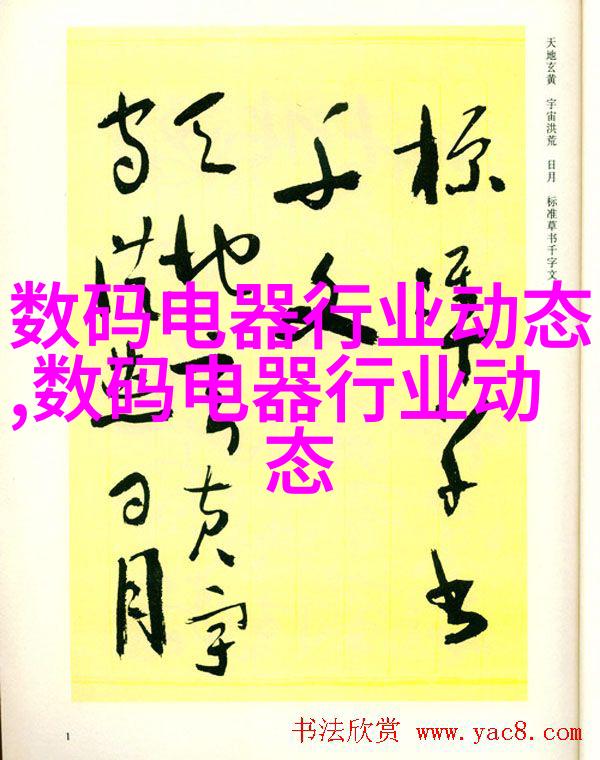 天地玄黄 宇宙洪荒 日月 标准草书千字文
标准草书
千文
天地玄黄宇
宙洪荒日月
数码电器行业动态
,数码电器行业动
态
1
书法欣赏 www.yac8.com